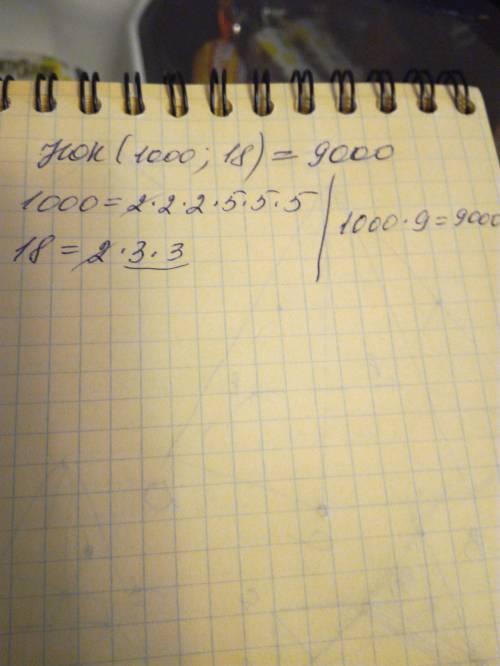 НОК (1000; 18) = 9000
1000 = 2·2·2·5·5·5
18 = 2·3·3
1000·9=9000